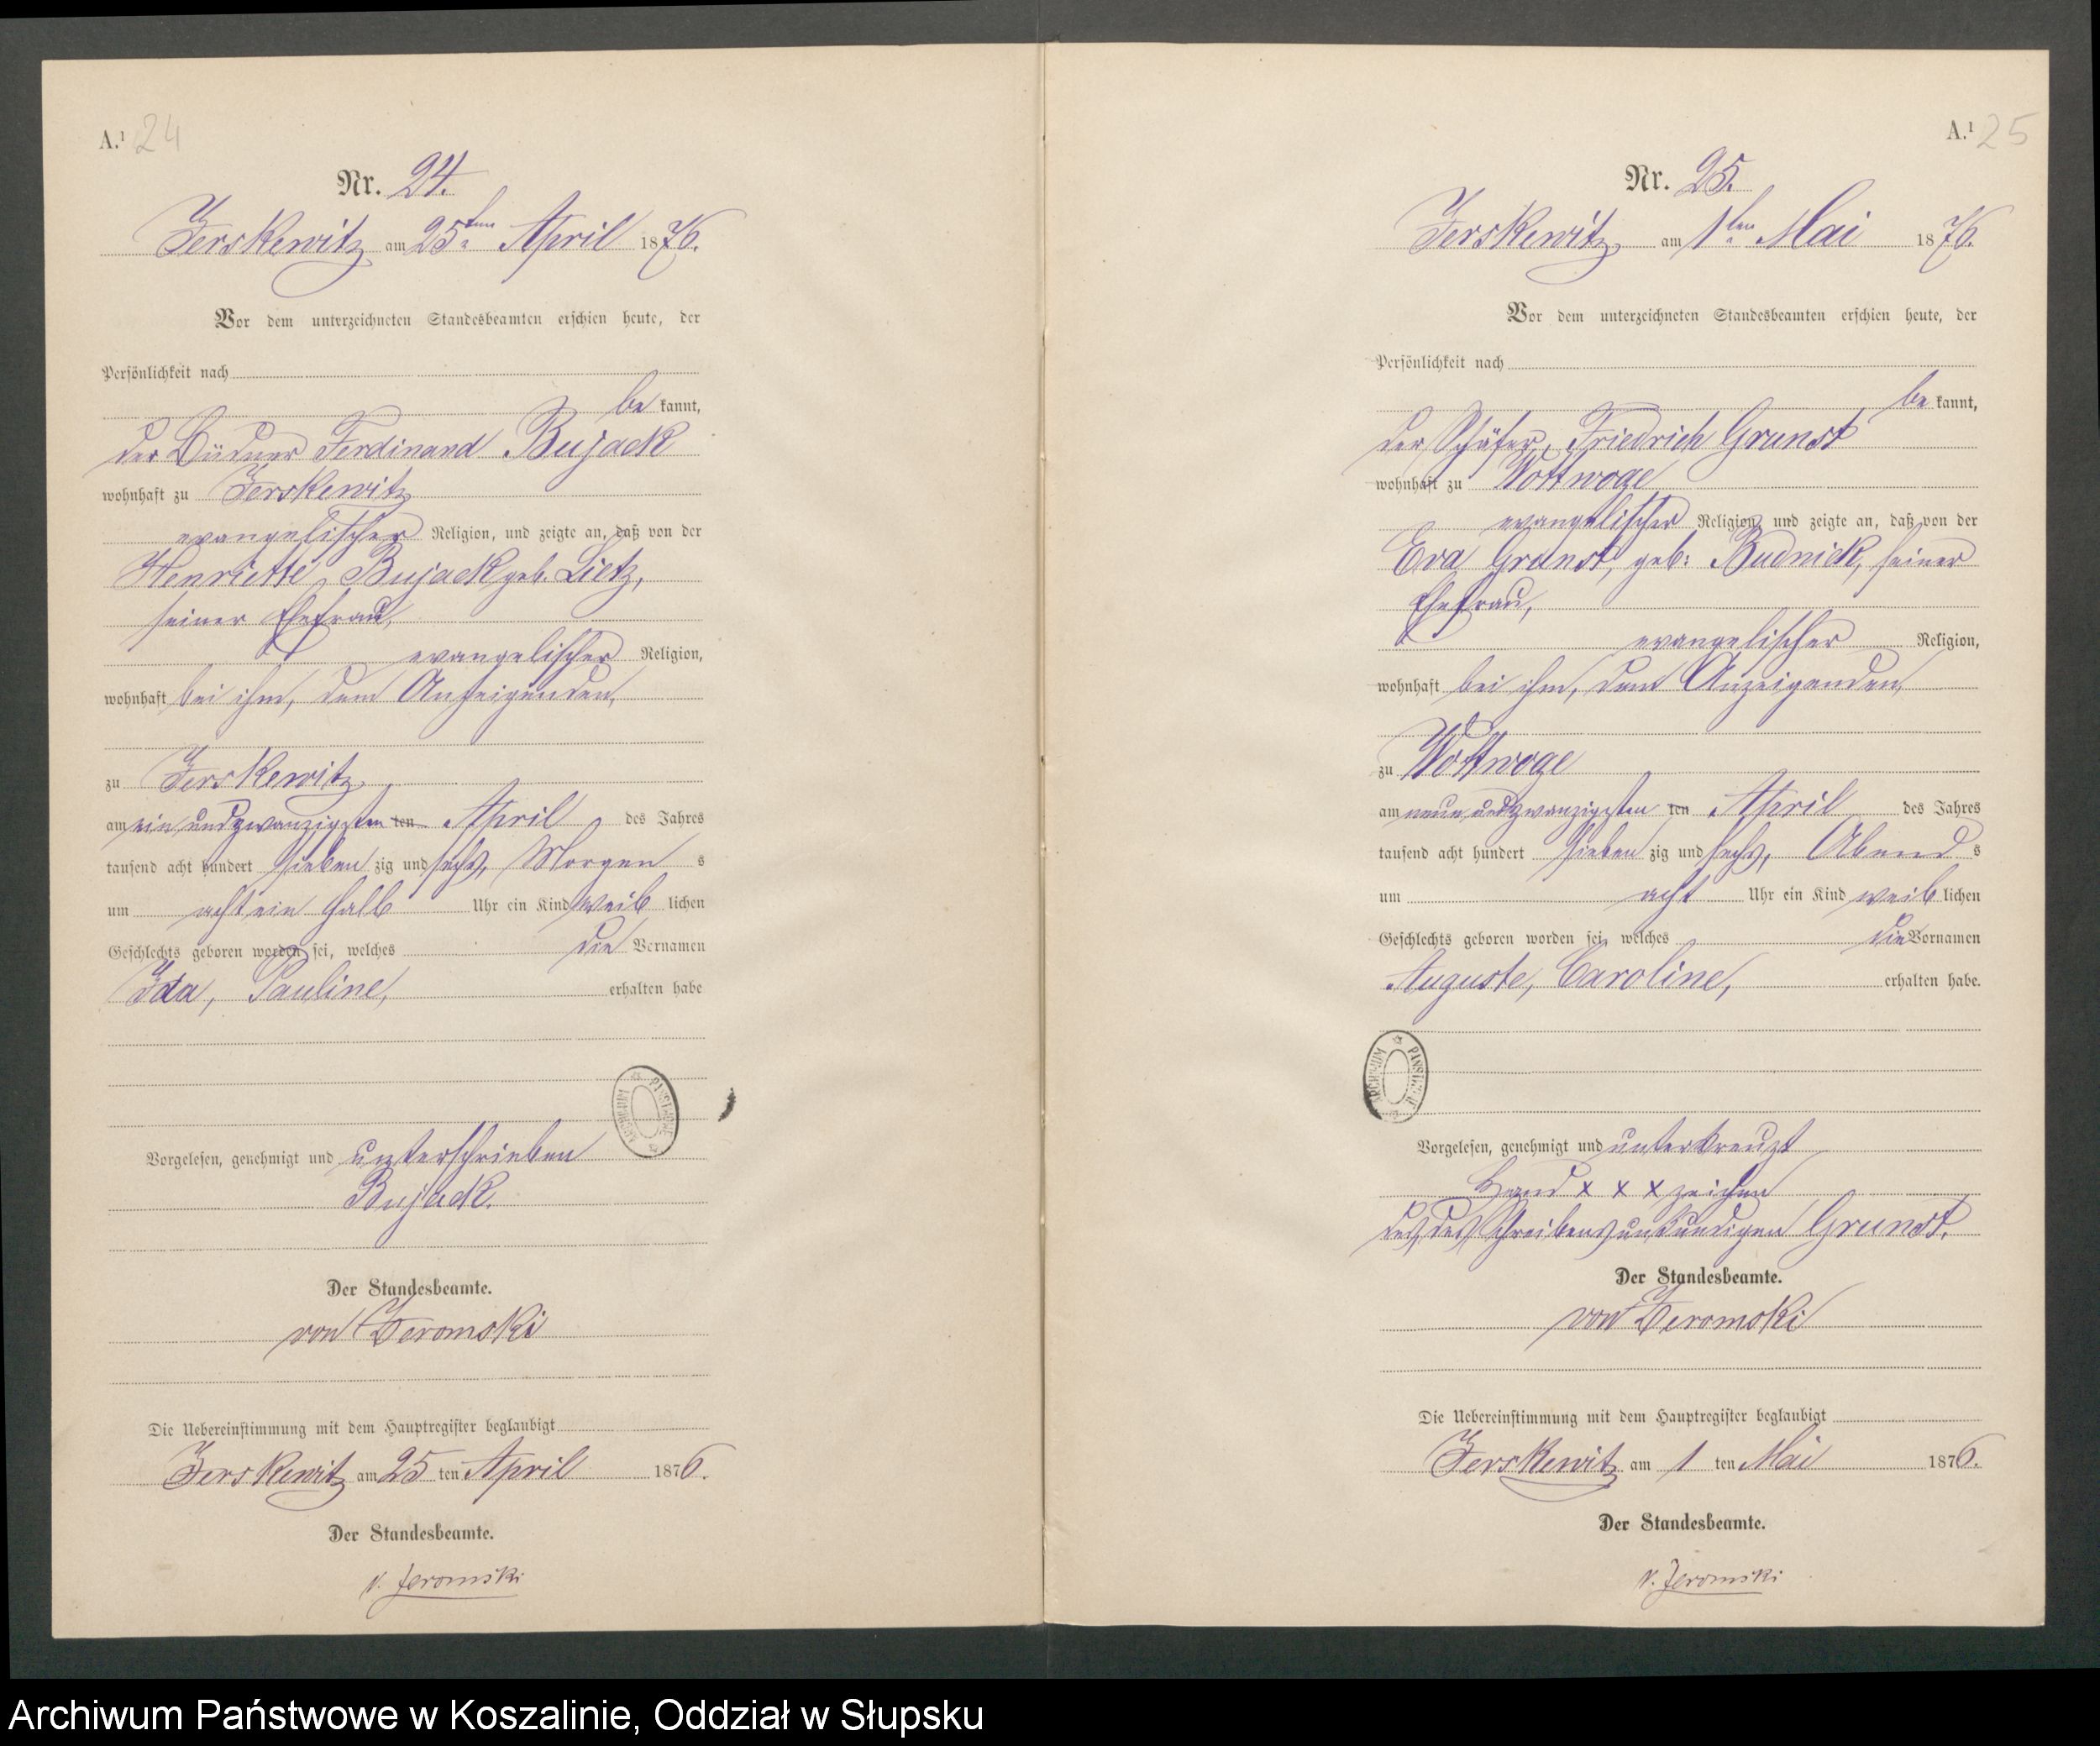 A.¹ 24
Nr. 24.
Jerskewitz am 25ten April 1876.
Vor dem unterzeichneten Standesbeamten erschien heute, der
Persönlichkeit nach
be kannt,
der Büdner Ferdinand Bujack
wohnhaft zu Jerskewitz
evangelischer Religion, und zeigte an, daß von der
Henriette, Bujack geb. Lietz,
seiner Ehefrau,
evangelischer Religion,
wohnhaft bei ihm, dem Anzeigenden,
zu Jerskewitz
am ein und zwanzigsten ten April des Jahres
tausend acht hundert sieben zig und sechs, Morgen s
um acht ein halb Uhr ein Kind weib lichen
Geschlechts geboren worden sei, welches die Vornamen
Ida, Pauline, erhalten habe
Vorgelesen, genehmigt und unterschrieben
Bujack.
Der Standesbeamte.
von Zeromski
Die Uebereinstimmung mit dem Hauptregister beglaubigt
Jerskewitz am 25 ten April 1876.
Der Standesbeamte.
v. Zeromski
A.¹ 25
Nr. 25.
Jerskewitz am 1ten Mai 1876.
Vor dem unterzeichneten Standesbeamten erschien heute, der
Persönlichkeit nach
be kannt,
der Schäfer, Friedrich Grunst
wohnhaft zu Wottwoge
evangelischer Religion, und zeigte an, daß von der
Eva Grunst, geb: Budnick, seiner
Ehefrau,
evangelischer Religion,
wohnhaft bei ihm, dem Anzeigenden,
zu Wottwoge
am neun und zwanzigsten ten April des Jahres
tausend acht hundert sieben zig und sechs, Abend s
um acht Uhr ein Kind weib lichen
Geschlechts geboren worden sei, welches die Vornamen
Auguste, Caroline, erhalten habe.
Vorgelesen, genehmigt und unterkreuzt
Hand x x x zeichen
des, des Schreibens unkundigen Grunst.
Der Standesbeamte.
von Zeromski
Die Uebereinstimmung mit dem Hauptregister beglaubigt
Jerskewitz am 1 ten Mai 1876.
Der Standesbeamte.
v. Zeromski
Archiwum Państwowe w Koszalinie, Oddział w Słupsku